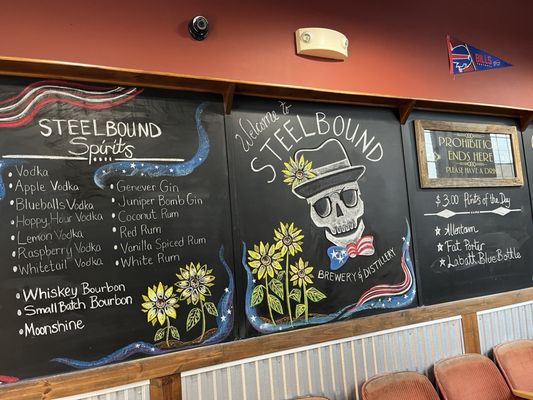 STEELBOUND
Spirits
Vodka
Apple Vodka
Blueballs Vodka
Hoppy Hour Vodka
Lemon Vodka
Raspberry Vodka
Whitetail Vodka
Whiskey Bourbon
Small batch Bourbon
Moonshine
Genever Gin
Juniper Bomb Gin
Coconut Rum
Red Rum
Vanilla Spiced Rum
White Rum
Welcome to
STEELBOUND
BREWERY & DISTILLERY
BILLS
PROHIBITION
ENDS HERE
PLEASE HAVE A DRINK
$3.00 Pints of the Day
Allentown
Fat Porter
Labatt Blue Bottle